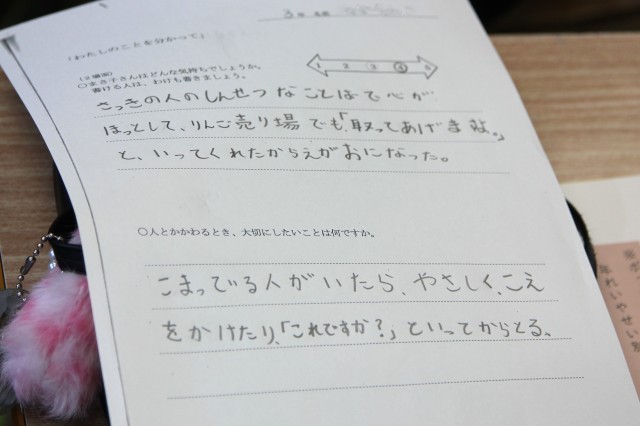 3年 名前
「わたしのことを分かって」
(2場面)
○まき子さんはどんな気持ちでしょうか。
書ける人は、わけも書きましょう。
1 2 3 4 5
さっきの人のしんせつなことばで心が
ほっとして、りんご売り場でも、「取ってあげますよ。」
と、いってくれたからえがおになった。
○人とかかわるとき、大切にしたいことは何ですか。
こまっている人がいたら、やさしく、こえ
をかけたり、「これですか?」といってからとる。